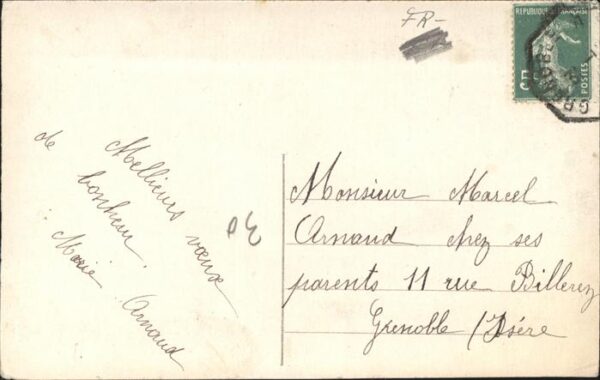 FR-
REPUBLIQUE FRANÇAISE
POSTES
GRENOBLE
Mellieurs vœux
de bonheur.
Marie Arnaud
30
Monsieur Marcel
Arnaud chez ses
parents 11 rue Billerez
Grenoble (Isère